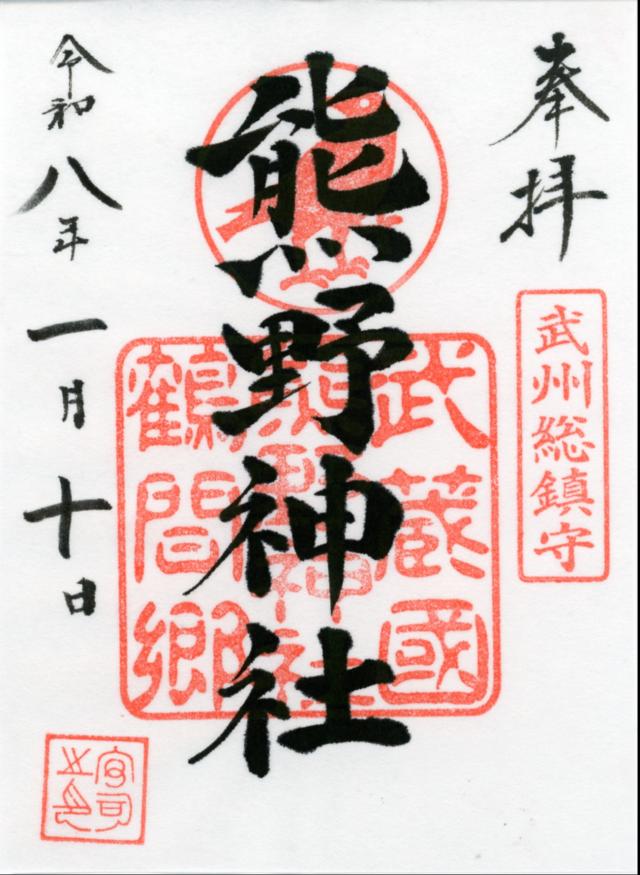 奉拝
武州総鎮守
熊野神社
武蔵國
鶴間郷
令和八年一月十日
宮司之印